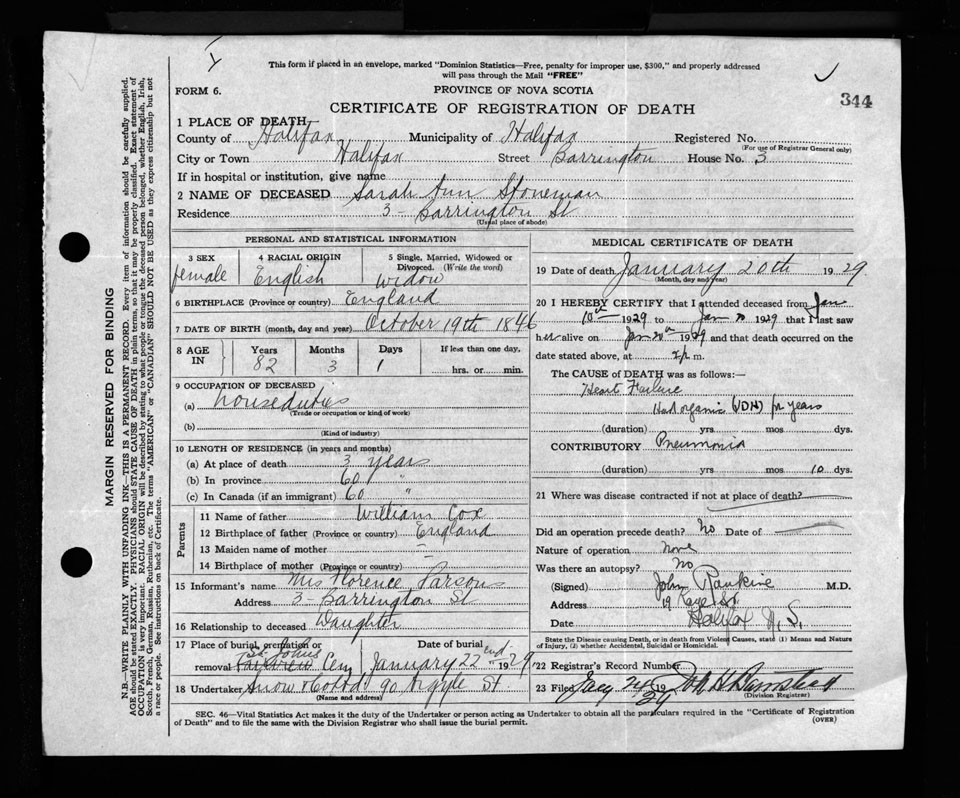 This form if placed in an envelope, marked "Dominion Statistics—Free, penalty for improper use, $300," and properly addressed
will pass through the Mail "FREE"
FORM 6.
PROVINCE OF NOVA SCOTIA
344
CERTIFICATE OF REGISTRATION OF DEATH
1 PLACE OF DEATH
County of Halifax Municipality of Halifax Registered No.
(For use of Registrar General only)
City or Town Halifax Street Barrington House No. 3
If in hospital or institution, give name
2 NAME OF DECEASED Sarah Ann Stoneman
Residence 3 - Barrington St
(Usual place of abode)
PERSONAL AND STATISTICAL INFORMATION
3 SEX 4 RACIAL ORIGIN 5 Single, Married, Widowed or Divorced. (Write the word)
female English Widow
6 BIRTHPLACE (Province or country) England
7 DATE OF BIRTH (month, day and year) October 19th 1846
8 AGE IN Years Months Days If less than one day,
82 3 1 hrs. or min.
9 OCCUPATION OF DECEASED
(a) houseduties
(Trade of occupation or kind of work)
(b)
(Kind of industry)
10 LENGTH OF RESIDENCE (in years and months)
(a) At place of death 3 years
(b) In province 60 "
(c) In Canada (if an immigrant) 60 "
Parents
11 Name of father William Cox
12 Birthplace of father (Province or country) England
13 Maiden name of mother -
14 Birthplace of mother (Province or country) -
15 Informant's name Mrs Florence Parsons
Address 3 - Barrington St
16 Relationship to deceased Daughter
17 Place of burial, cremation or removal St. Johns Fairview Cem
Date of burial January 22nd 1929
18 Undertaker Snow & Co Ltd 90 Argyle St
(Name and address)
MEDICAL CERTIFICATE OF DEATH
19 Date of death January 20th 1929
(Month, day and year)
20 I HEREBY CERTIFY that I attended deceased from Jan
10th 1929 to Jan 20 1929 that I last saw
her alive on Jan 20th 1929 and that death occurred on the
date stated above, at m.
The CAUSE of DEATH was as follows:
Heart Failure
Had organic (VDH) for years
(duration) yrs mos dys.
CONTRIBUTORY Pneumonia
(duration) yrs mos 10 dys.
21 Where was disease contracted if not at place of death?
Did an operation precede death? No Date of
Nature of operation None
Was there an autopsy? No
(Signed) John Rankine M.D.
Address 19 St.
Date Halifax N.S.
State the Disease causing Death, or in death from Violent Causes, state (1) Means and Nature
of Injury, (2) whether Accidental, Suicidal or Homicidal.
22 Registrar's Record Number
23 Filed 1929
(Division Registrar)
SEC. 46—Vital Statistics Act makes it the duty of the Undertaker or person acting as Undertaker to obtain all the particulars required in the "Certificate of Registration
of Death" and to file the same with the Division Registrar who shall issue the burial permit.
(OVER)
MARGIN RESERVED FOR BINDING
N.B.—WRITE PLAINLY WITH UNFADING INK—THIS IS A PERMANENT RECORD. Every item of information should be carefully supplied.
AGE should be stated EXACTLY. PHYSICIANS should STATE CAUSE OF DEATH in plain terms, so that it may be properly classified. Exact statement of
OCCUPATION is very important. RACIAL ORIGIN will be described by stating to what people or tongue the deceased person belonged, whether English, Irish,
Scotch, French, German, Russian, Ruthenian, etc. The terms "AMERICAN" or "CANADIAN" SHOULD NOT BE USED as they express citizenship but not
a race or people. See instructions on back of Certificate.